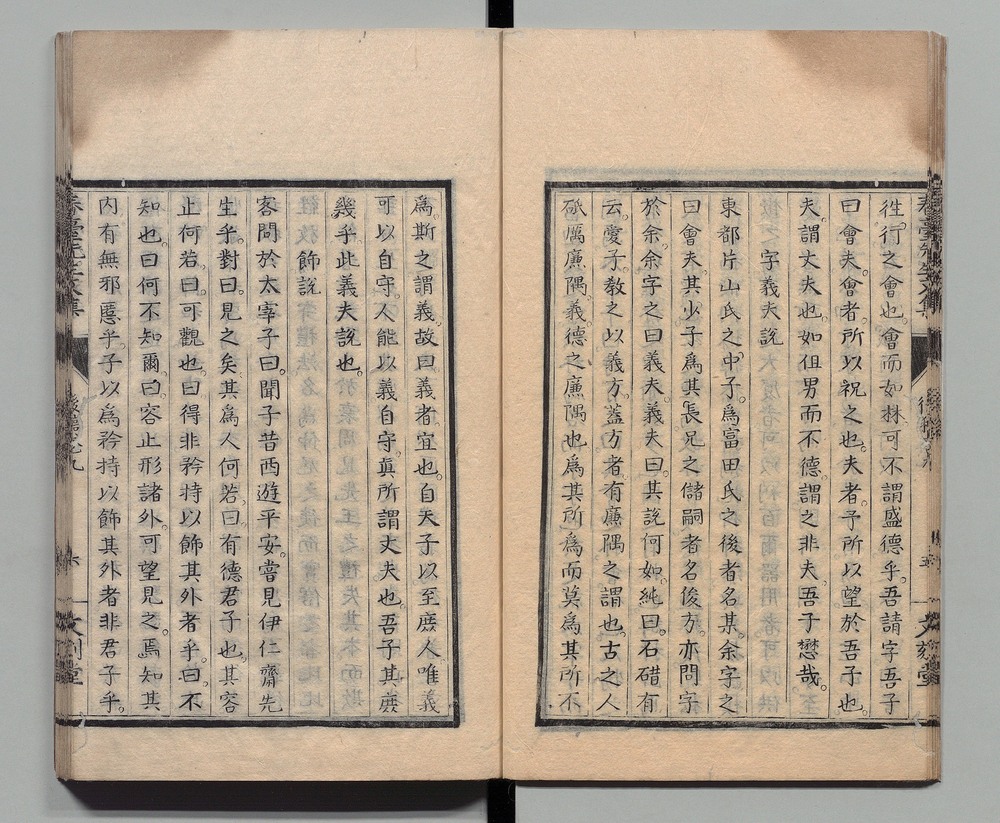 徃行之會也會而如林可不謂盛德乎吾請字吾子
曰會夫會者所以祝之也夫者予所以望於吾子也
夫謂大夫也如伹男而不德謂之非夫吾子懋哉
字義夫説
東都片山氏之中子爲富田氏之後者名某余字之
曰會夫其少子爲其長兄之儲嗣者名俊方亦問字
於余余字之曰義夫義夫曰其説何如純曰石碏有
云愛子教之以義方蓋方者有廉隅之謂也古之人
砥厲廉隅義德之廉隅也爲其所爲而莫爲其所不
爲斯之謂義故曰義者宜也自天子以至庻人人唯義
可以自守人能以義自守眞所謂丈夫也吾子其庻
幾乎此義夫説也
飾説
客問於太宰子曰聞子昔西遊平安嘗見伊仁齋先
生乎對曰見之矣其爲人何若曰有德君子也其容
止何若曰可觀也曰得非矜持以飾其外者乎曰不
知也曰何不知爾曰容止形諸外可望見之焉知其
内有無邪慝乎子以爲矜持以飾其外者非君子乎